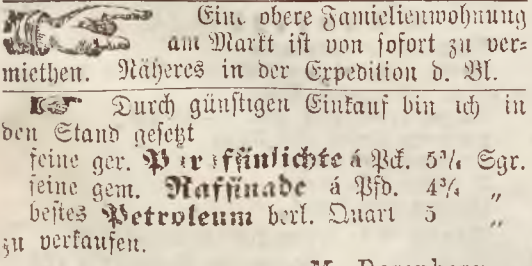 Eine obere Famielienwohnung
am Markt ist von sofort zu ver-
miethen. Näheres in der Expedition d. Bl.
Durch günstigen Einkauf bin ich in
den Stand gesetzt
feine ger. Paraffinlichte á Pck. 5¾ Sgr.
feine gem. Raffinade á Pfd. 4¾ "
bestes Petroleum berl. Quart 5 "
zu verkaufen.